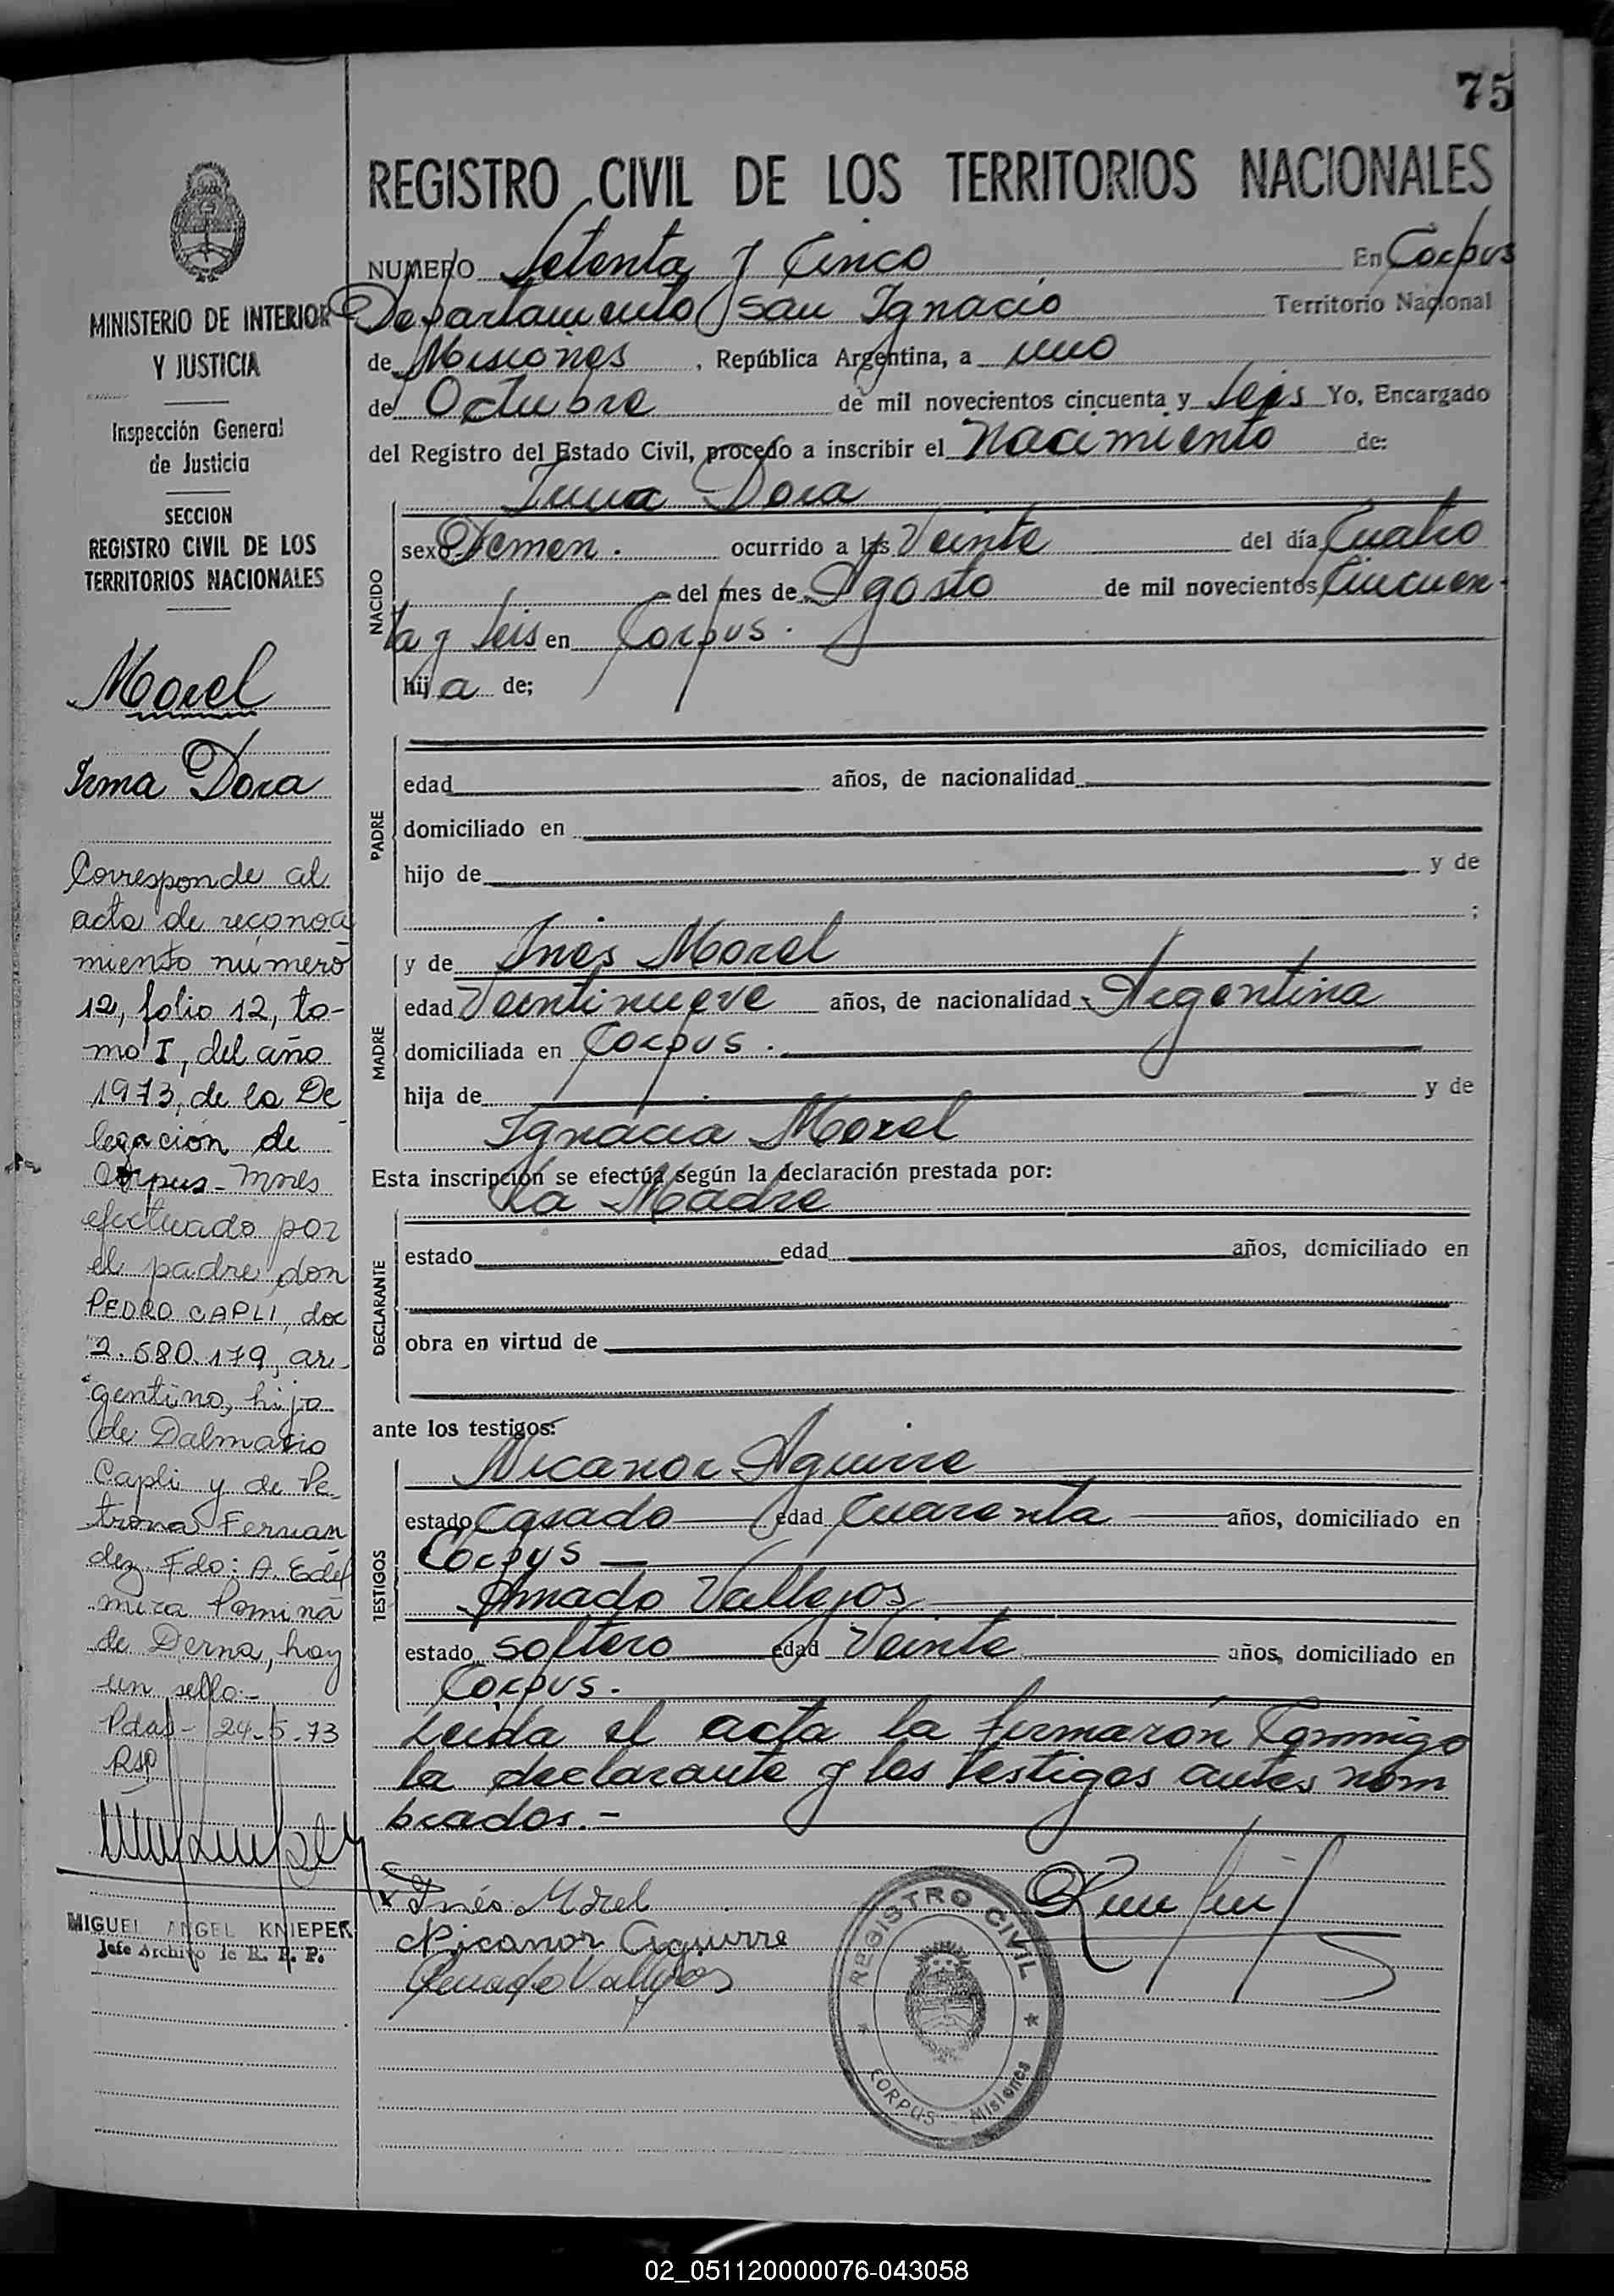 75
REGISTRO CIVIL DE LOS TERRITORIOS NACIONALES
NUMERO Setenta y Cinco En Corpus
Departamento San Ignacio Territorio Nacional
de Misiones, República Argentina, a uno
de Octubre de mil novecientos cincuenta y seis Yo, Encargado
del Registro del Estado Civil, procedo a inscribir el Nacimiento de:
Irma Dora
NACIDO
sexo Femen. ocurrido a las Veinte del día Cuatro
del mes de Agosto de mil novecientos Cincuen-
ta y seis en Corpus.
hija de;
PADRE
edad años, de nacionalidad
domiciliado en
hijo de y de
;
MADRE
y de Ines Morel
edad Veintinueve años, de nacionalidad Argentina
domiciliada en Corpus.
hija de y de
Ignacia Morel
Esta inscripción se efectúa según la declaración prestada por:
La Madre
DECLARANTE
estado edad años, domiciliado en
obra en virtud de
ante los testigos:
TESTIGOS
Nicanor Aguirre
estado Casado edad Cuarenta años, domiciliado en
Corpus
Amado Vallejos
estado soltero edad Veinte años, domiciliado en
Corpus.
Leida el acta la firmarón Conmigo
la declarante y los testigos antes nom
brados.-
Inés Morel
Nicanor Aguirre
Amado Vallejos
REGISTRO CIVIL
CORPUS Misiones
MINISTERIO DE INTERIOR
Y JUSTICIA
Inspección General
de Justicia
SECCION
REGISTRO CIVIL DE LOS
TERRITORIOS NACIONALES
Morel
Irma Dora
Corresponde al
acta de reconoci
miento numero
12, folio 12, to-
mo I, del año
1973, de la De
legación de
Corpus-Mnes
efectuado por
el padre don
PEDRO CAPLI, doc
2.680.179, ar-
gentino, hijo
de Dalmacio
Capli y de Pe-
trona Fernan
dez. Fdo: A. Edel
mira Lomina
de Derna, hay
un sello.-
Pdas- 24-5-73
MIGUEL ANGEL KNIEPER
Jefe Archivo de R. P. P.
02_051120000076-043058